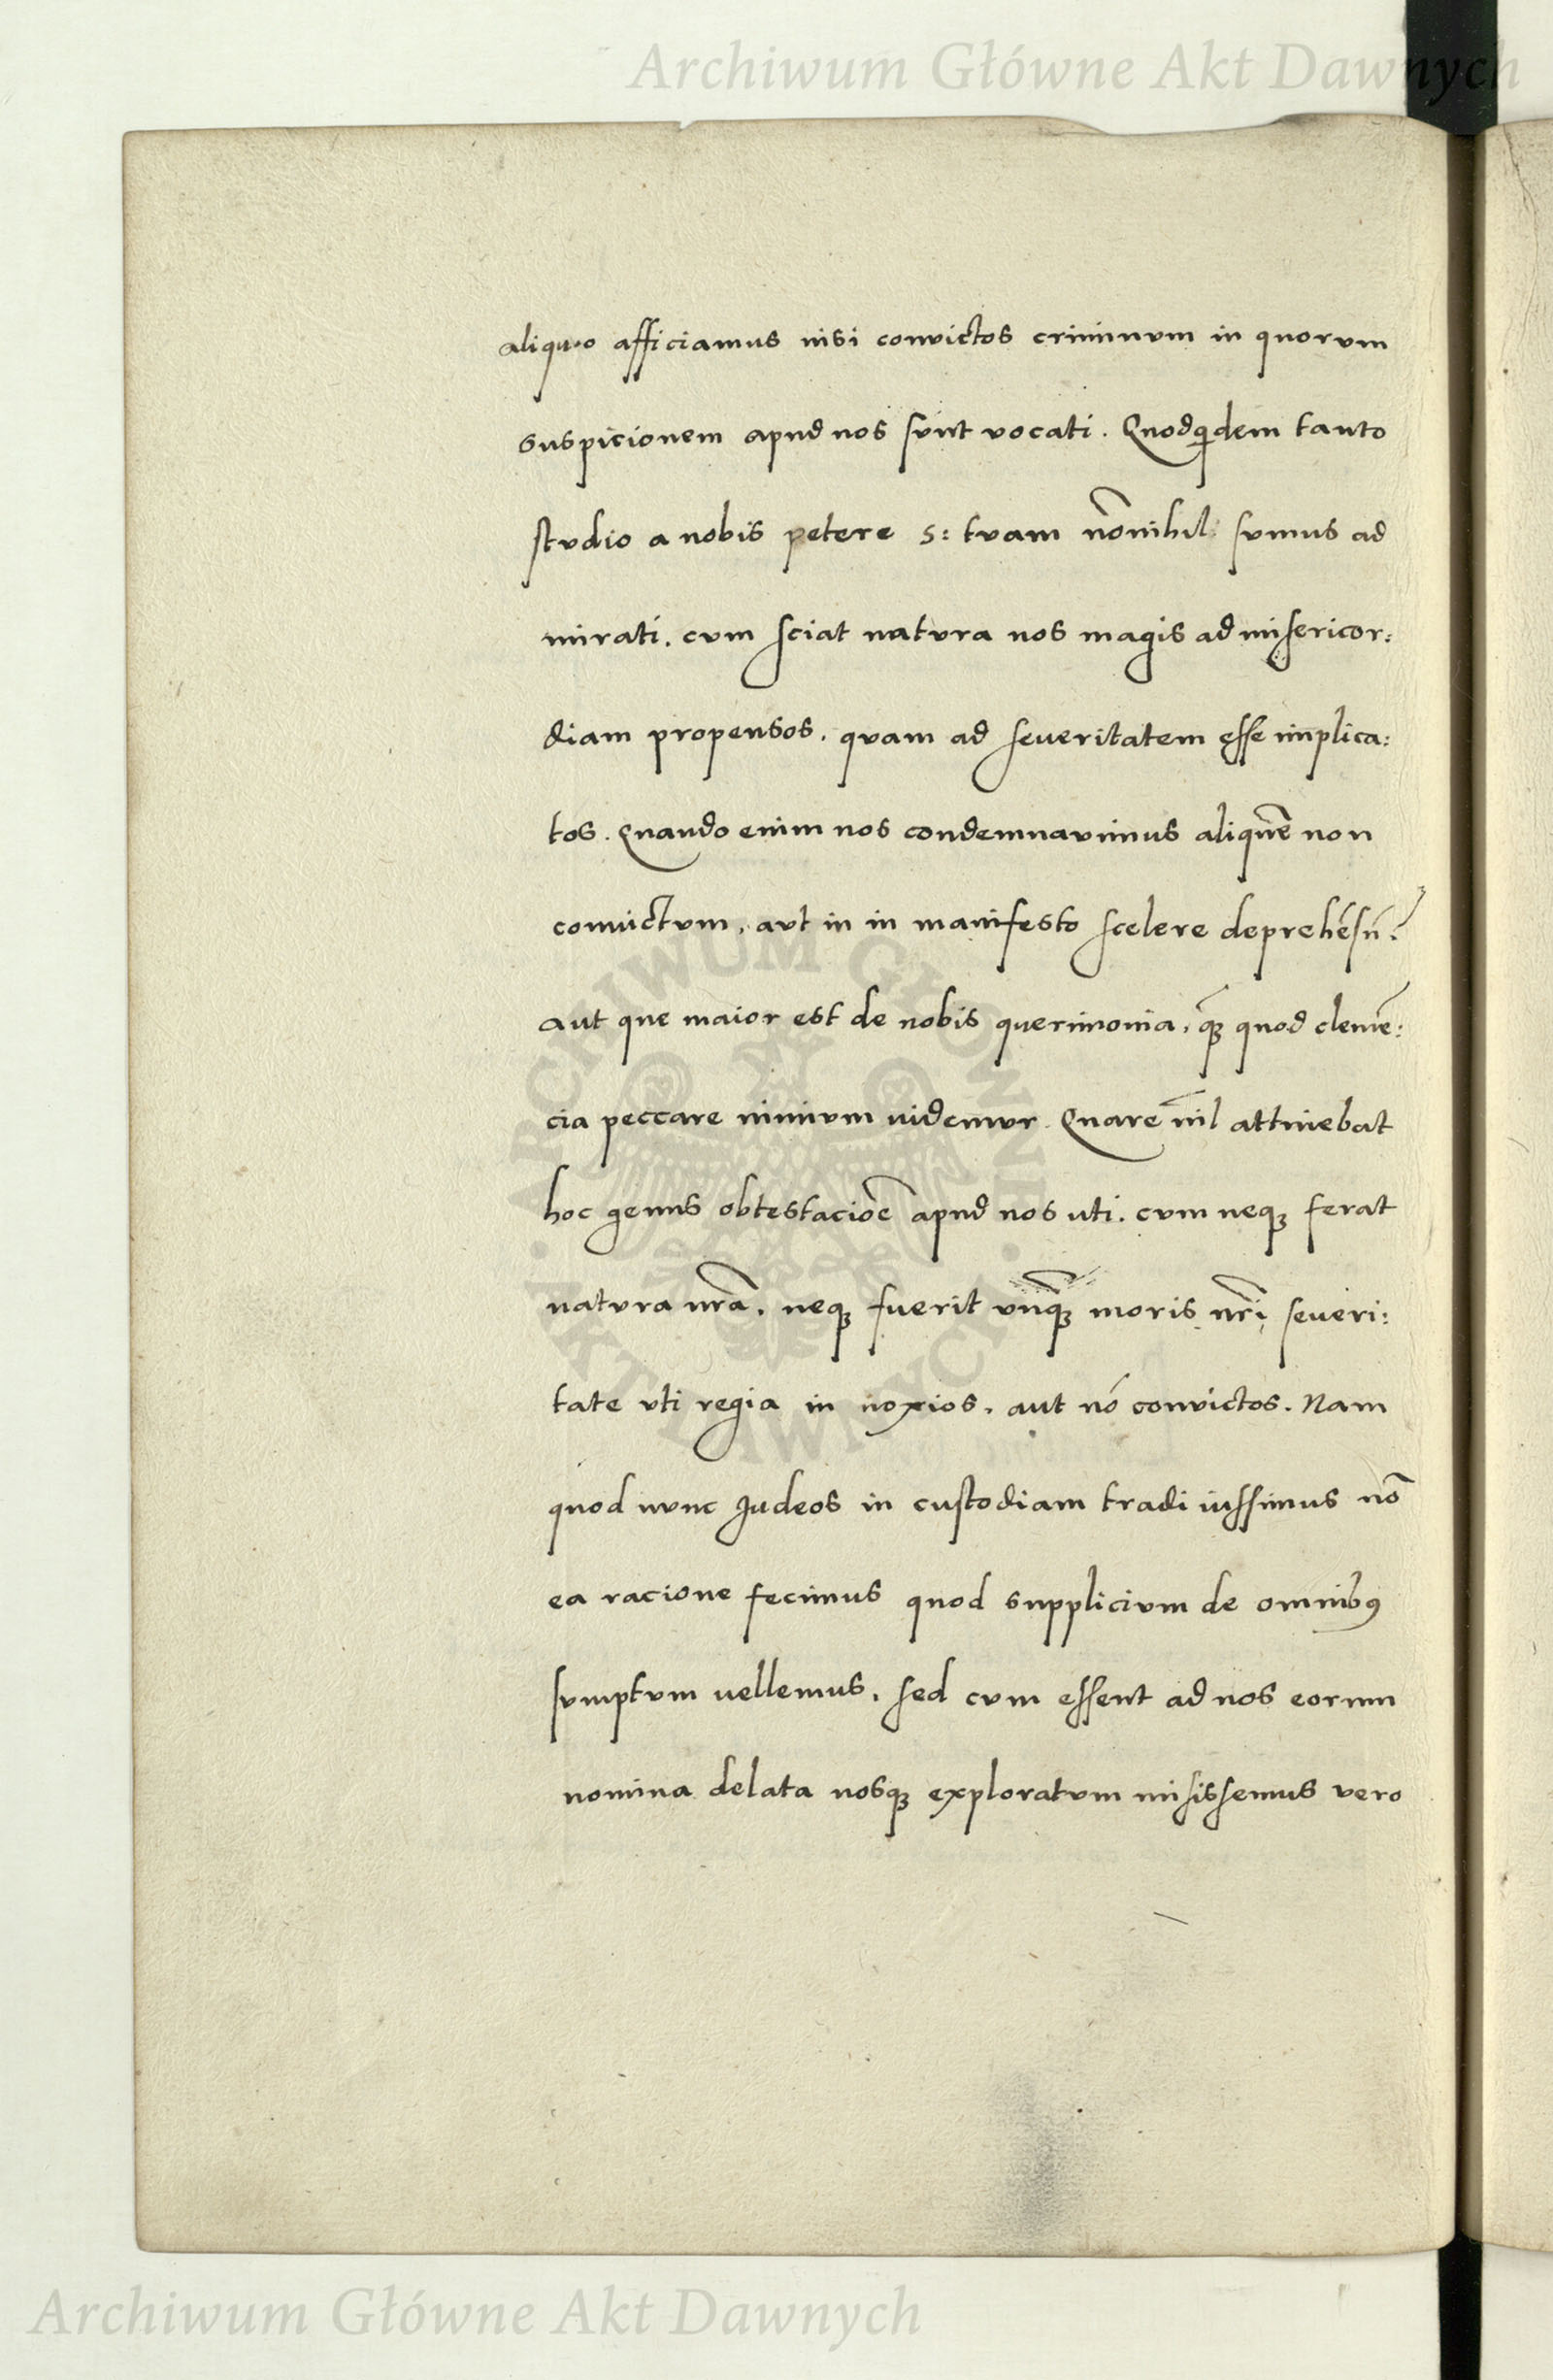 Archiwum Główne Akt Dawnych
aliquo afficiamus nisi convictos criminvm in quorvm
suspicionem apud nos svnt vocati. Quodqidem tanto
stvdio a nobis petere S: tvam nōnihil svmus ad
mirati. cvm sciat natvra nos magis ad misericor:
diam propensos, qvam ad severitatem esse implica:
tos. Quando enim nos condemnavimus aliquē non
convictvm, avt in in manifesto scelere deprehēsū?
aut que maior est de nobis querimonia, qꝫ̄ quod clemē:
cia peccare nimivm videmvr. Quare nīl attinebat
hoc genus obtestaciōe apud nos uti. cvm neqꝫ ferat
natvra nr̄a, neqꝫ fuerit vnqꝫ̄ moris nr̄i severi:
tate vti regia in noxios, aut nō convictos. Nam
quod nvnc Judeos in custodiam tradi iussimus nō
ea racione fecimus quod supplicivm de omnibꝰ
svmptvm vellemus, sed cvm essent ad nos eorum
nomina delata nosqꝫ exploratvm misissemus vero
ARCHIWUM GŁÓWNE · AKT DAWNYCH ·
Archiwum Główne Akt Dawnych